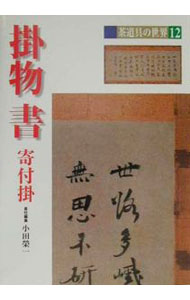 茶道具の世界 12
掛物 書
寄付掛
責任編集 小田榮一
世路多巇
無思不研